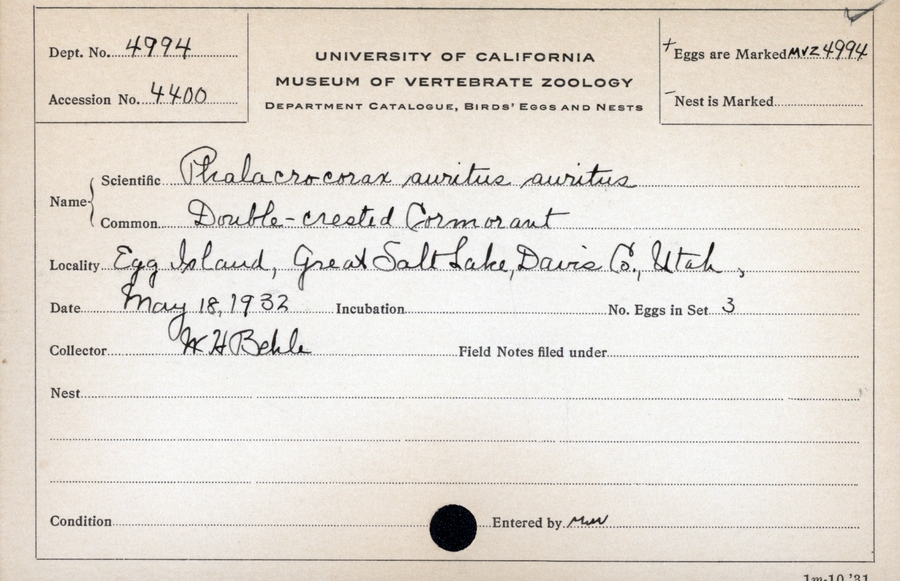 Dept. No. 4994
Accession No. 4400
UNIVERSITY OF CALIFORNIA
MUSEUM OF VERTEBRATE ZOOLOGY
DEPARTMENT CATALOGUE, BIRDS' EGGS AND NESTS
+Eggs are Marked MVZ 4994
-Nest is Marked
Name
Scientific Phalacrocorax auritus auritus
Common Double-crested Cormorant
Locality Egg Island, Great Salt Lake, Davis Co., Utah,
Date May 18, 1932 Incubation No. Eggs in Set 3
Collector W H Behle Field Notes filed under
Nest
Condition Entered by
1m-10 '31